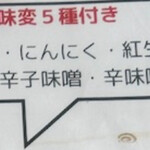 味変5種付き
・にんにく・紅生
辛子味噌・辛味